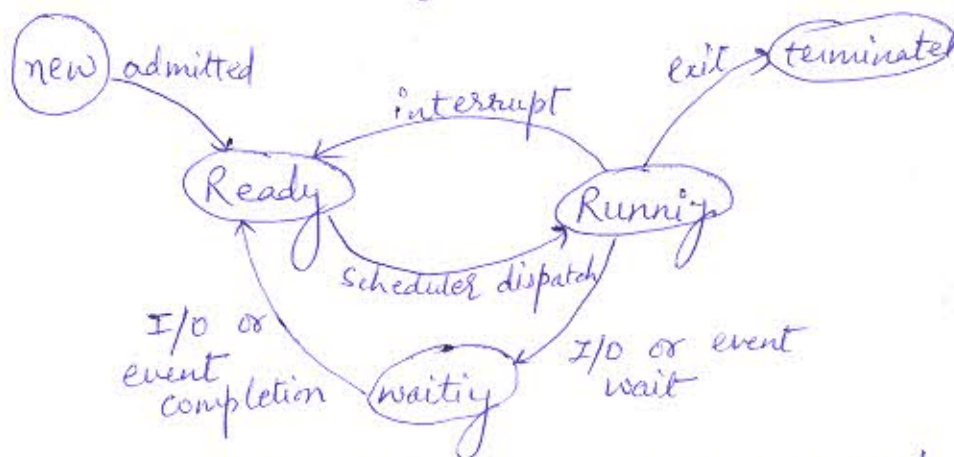 new
admitted
exit
terminated
interrupt
Ready
Running
scheduler dispatch
I/O or
event
completion
waiting
I/O or event
wait